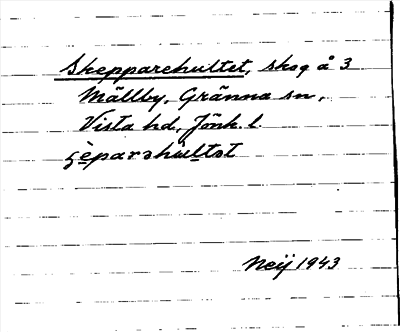 Skepparehultet, skog å 3
Mällby, Gränna sn,
Vista hd, Jönk. l.
ʂèparshùltət
Neij 1943